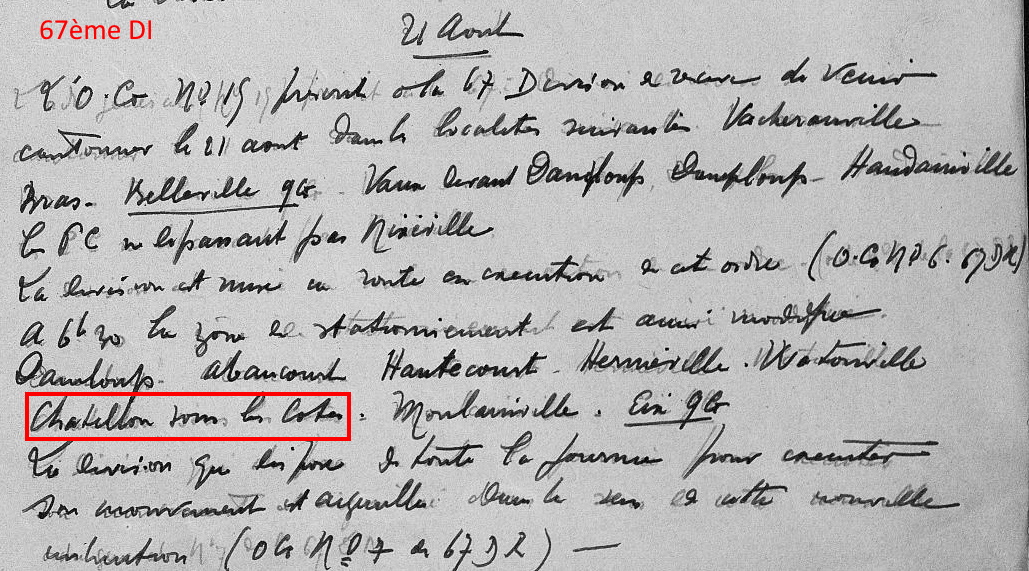 67ème DI
21 Aout
L'O.G. No 19 prescrit à la 67 Division de reserve de venir
cantonner le 21 aout dans les localités suivantes Vacherauville
Bras - Belleville QG - Vaux devant Damploup, Damploup - Haudainville
le PC ne depassant pas Nixéville
La division est mise en route en execution de cet ordre (O.G. No 6. 67 DR)
A 6h 30 la zone de stationnement est ainsi modifiée
Damloup. abaucourt Hautecourt - Herméville. Watronville
Chatillon sous les Cotes. Moulainville. Eix QG
La division qui dispose de toute la journée pour executer
son mouvement est aiguillée dans le sens de cette nouvelle
(OG No 7 de 67 DR) —